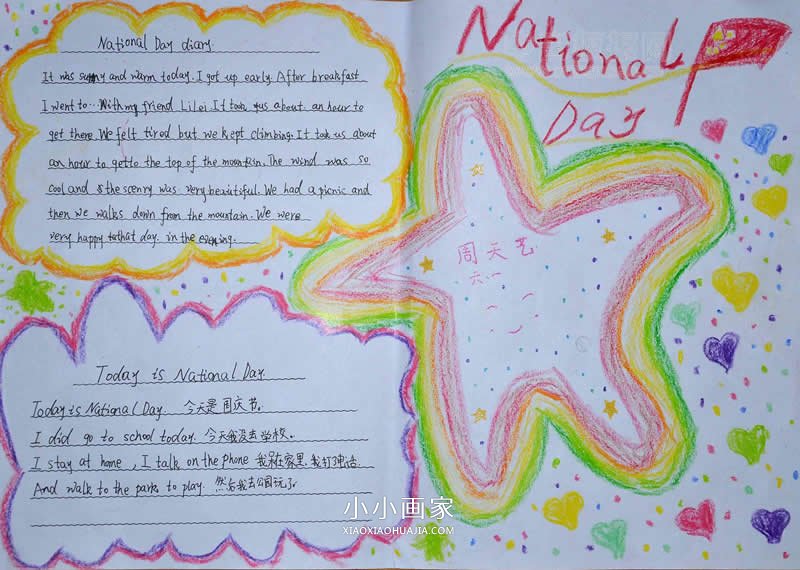 National Day diary.
It was sunny and warm today. I got up early. After breakfast
I went to... With my friend LiLei. It took us about an hour to
get there. We felt tired but we kept climbing. It took us about
an hour to getto the top of the mountain. The wind was so
cool and the scenry was very beautiful. We had a picnic and
then we walks down from the mountain. We were
very happy that day. in the evening.
National
Day
周天艺
六.一
Today is National Day
Today is National Day 今天是 周庆节.
I did go to school today. 今天我没去学校。
I stay at home, I talk on the phone 我呆在家里.我打了电话.
And walk to the park to play. 然后我去公园玩了
小小画家
XIAOXIAOHUAJIA.COM